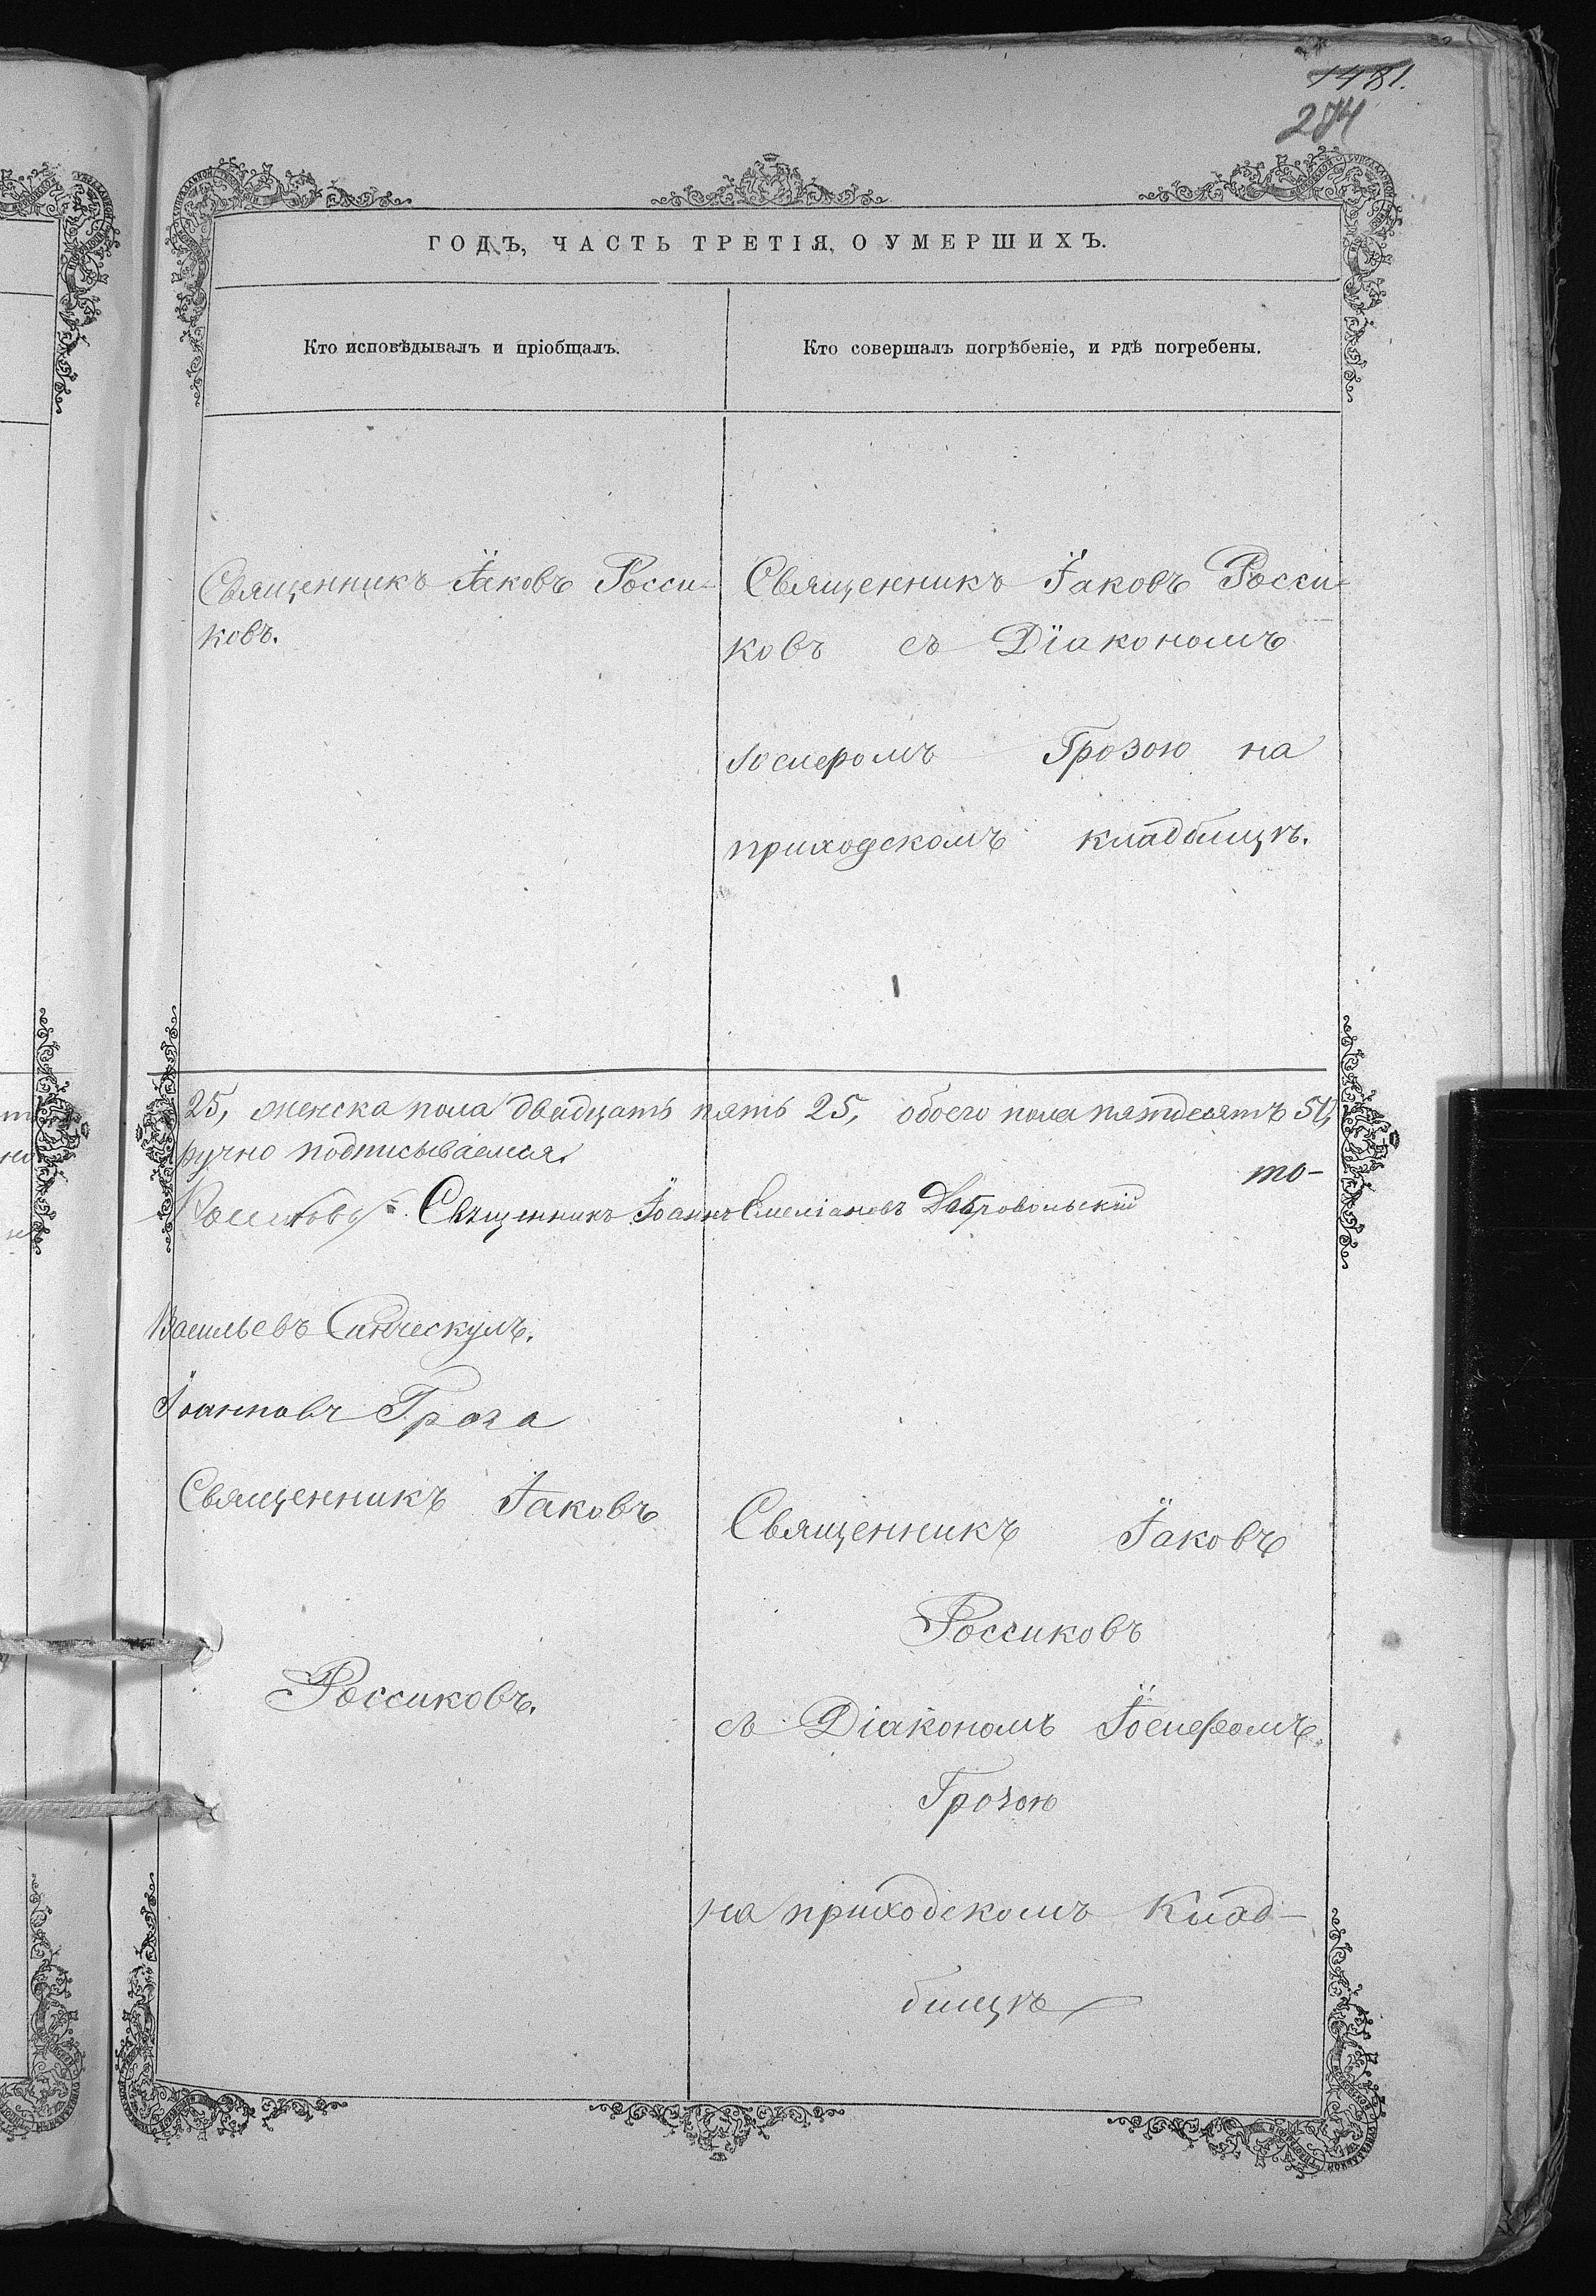 1481.
274
ГОДЪ, ЧАСТЬ ТРЕТІЯ, О УМЕРШИХЪ.
Кто исповѣдывалъ и пріобщалъ.
Кто совершалъ погрѣбеніе, и гдѣ погребены.
Священникъ Іаковъ Росси-
ковъ.
Священникъ Іаковъ Росси-
ковъ съ Діакономъ
Іосифомъ Грозою на
приходскомъ кладбищѣ.
25, женска пола двадцать пять 25, обоего пола пятдесятъ 50,
ручно подписываемся. то-
Россиковъ Священникъ Іоаннъ Емеліановъ Добровольскій
Васильевъ
Іоанновъ Гроза
Священникъ Іаковъ
Россиковъ.
Священникъ Іаковъ
Россиковъ
съ Діакономъ Іосифомъ
Грозою
на приходскомъ клад-
бищѣ